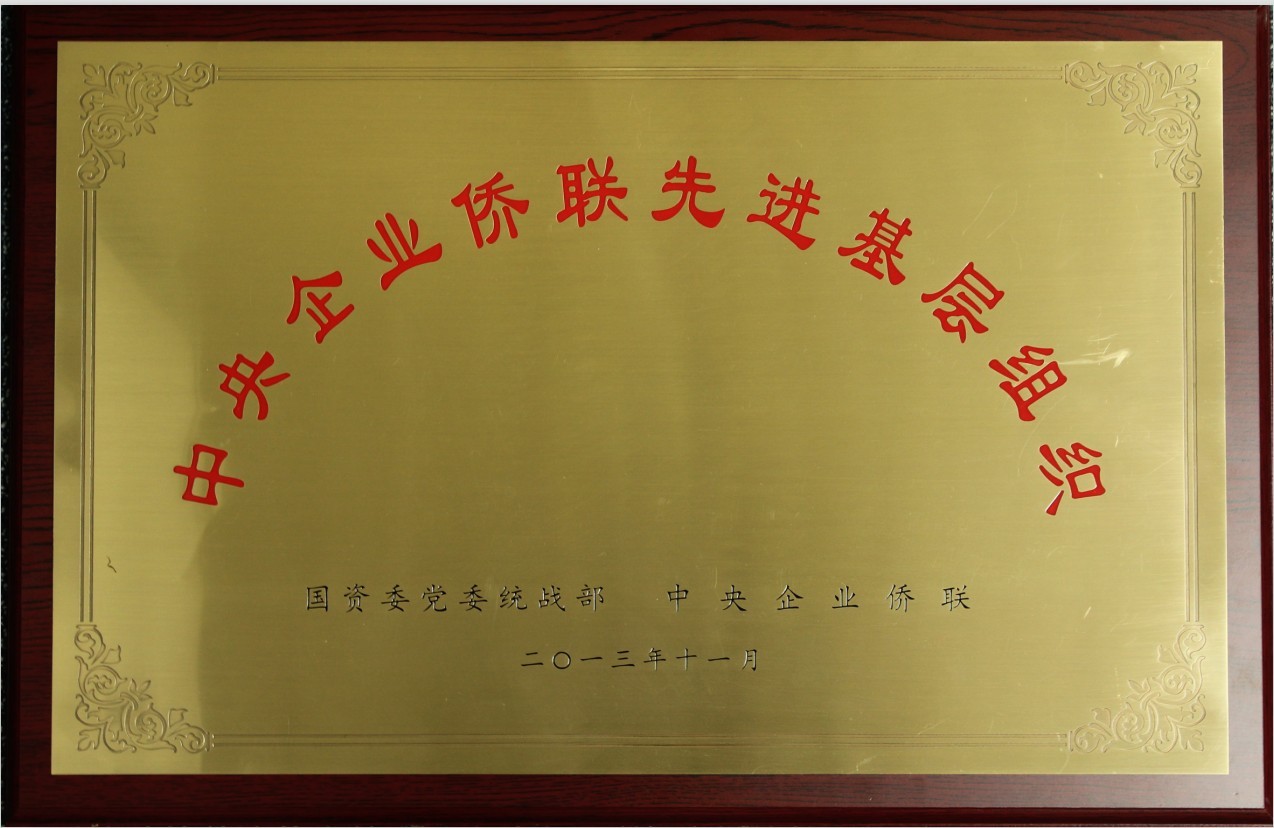 中央企业侨联先进基层组织
国资委党委统战部 中央企业侨联
二〇一三年十一月